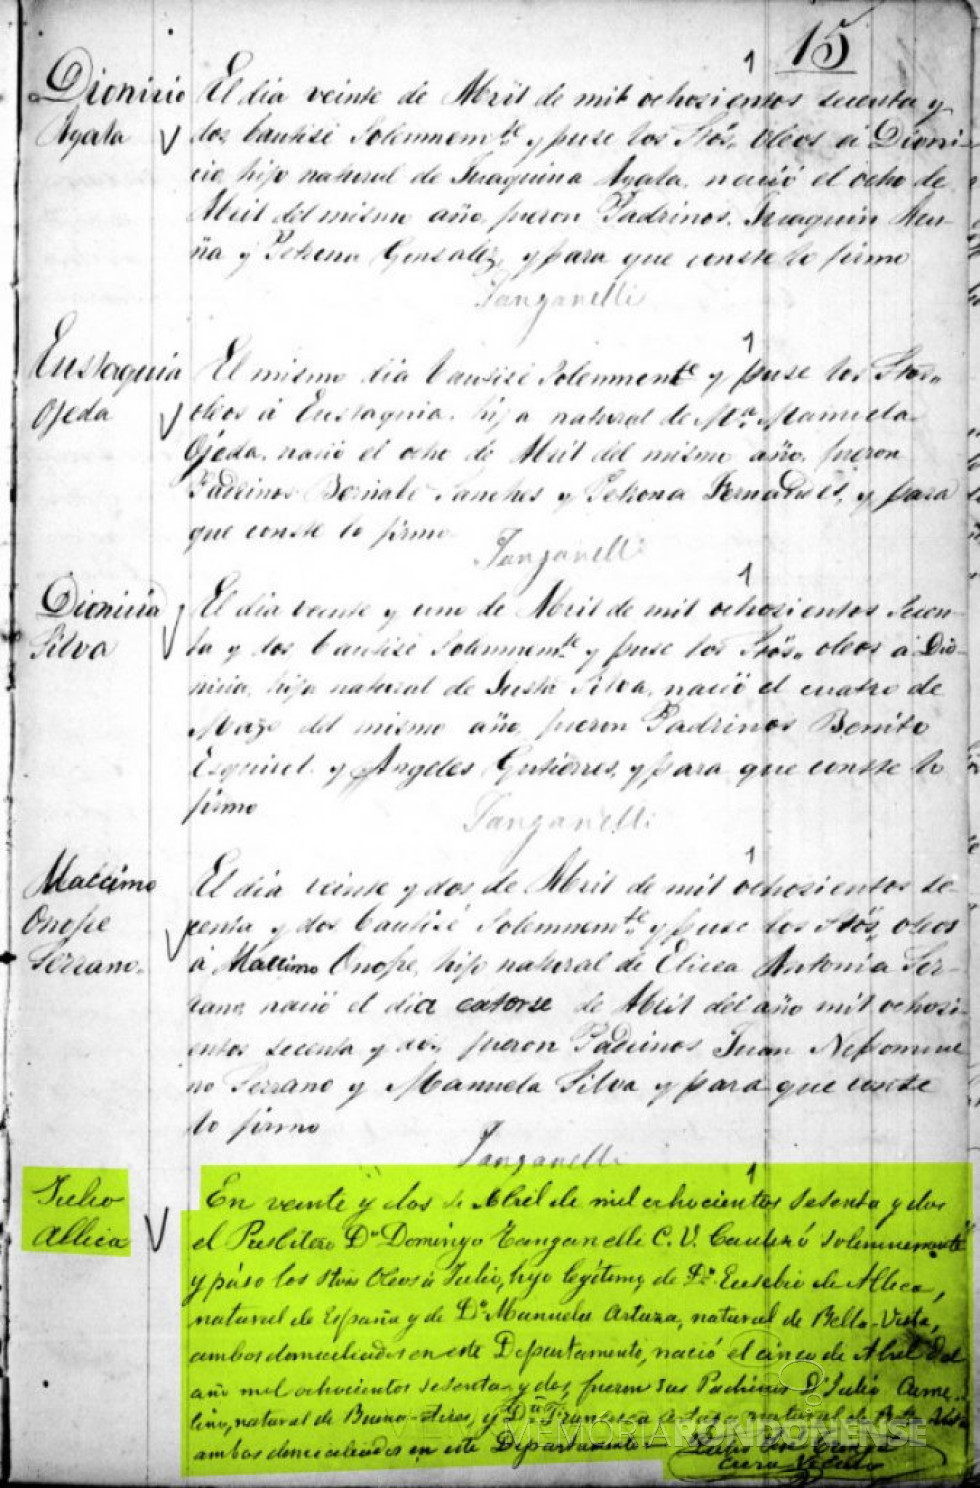 15
Dionisio
Ayala
El dia veinte de Abril de mil ochosientos secenta y
dos bautisé Solemnemte y puse los Stos oleos á Dioni-
cio, hijo natural de Juaquina Ayala, nació el ocho de
Abril del mismo año, fueron Padrinos, Juaquin Acu-
ña y Petrona Gonsalez, y para que conste lo firmo
Tanganelli
Eustaquia
Ojeda
El mismo dia bautisé Solemnemte y puse los Stos
oleos á Eustaquia, hija natural de Ma Manuela
Ojeda, nació el ocho de Abril del mismo año, fueron
Padrinos Bernabé Sanches y Petrona Fernandes, y para
que conste lo firmo
Tanganelli
Dionicia
Silva
El dia veinte y uno de Abril de mil ochosientos secen-
ta y dos, bautisé Solemnemte y puse los Stos oleos á Dio-
nicia, hija natural de Justa Silva, nació el cuatro de
Marzo del mismo año, fueron Padrinos Benito
Esquivel y Angeles Gutierres, y para que conste lo
firmo
Tanganelli
Maccimo
Onofre
Serrano
El dia veinte y dos de Abril de mil ochosientos se-
centa y dos bautisé Solemnemte y puse los Stos oleos
á Maccimo Onofre, hijo natural de Antonia Ser-
rano, nació el dia catorse de Abril del año mil ochosi-
entos secenta y dos, fueron Padrinos Juan Nepomuce
no Serrano y Manuela Silva y para que conste
lo firmo
Tanganelli
Julio
Allica
En veinte y dos de Abril de mil ochocientos sesenta y dos
el Presbítero Dn Domingo Tanganelli C. V. Bautizó solemnemente
y púso los Stos Oleos á Julio, hijo legítimo, de Dn Eusebio de Allica,
natural de España y de Da Manuela Artaza, natural de Bella-Vista,
ambos domiciliados en este Departamento, nació el cinco de Abril del
año mil ochocientos sesenta y dos, fueron sus Padrinos Dn Julio
natural de Buenos-Aires, y Da Francisca Artaza natural de Bella Vista
ambos domiciliados en este Departamento
Cura Vicario
MEMORIA RONDONENSE